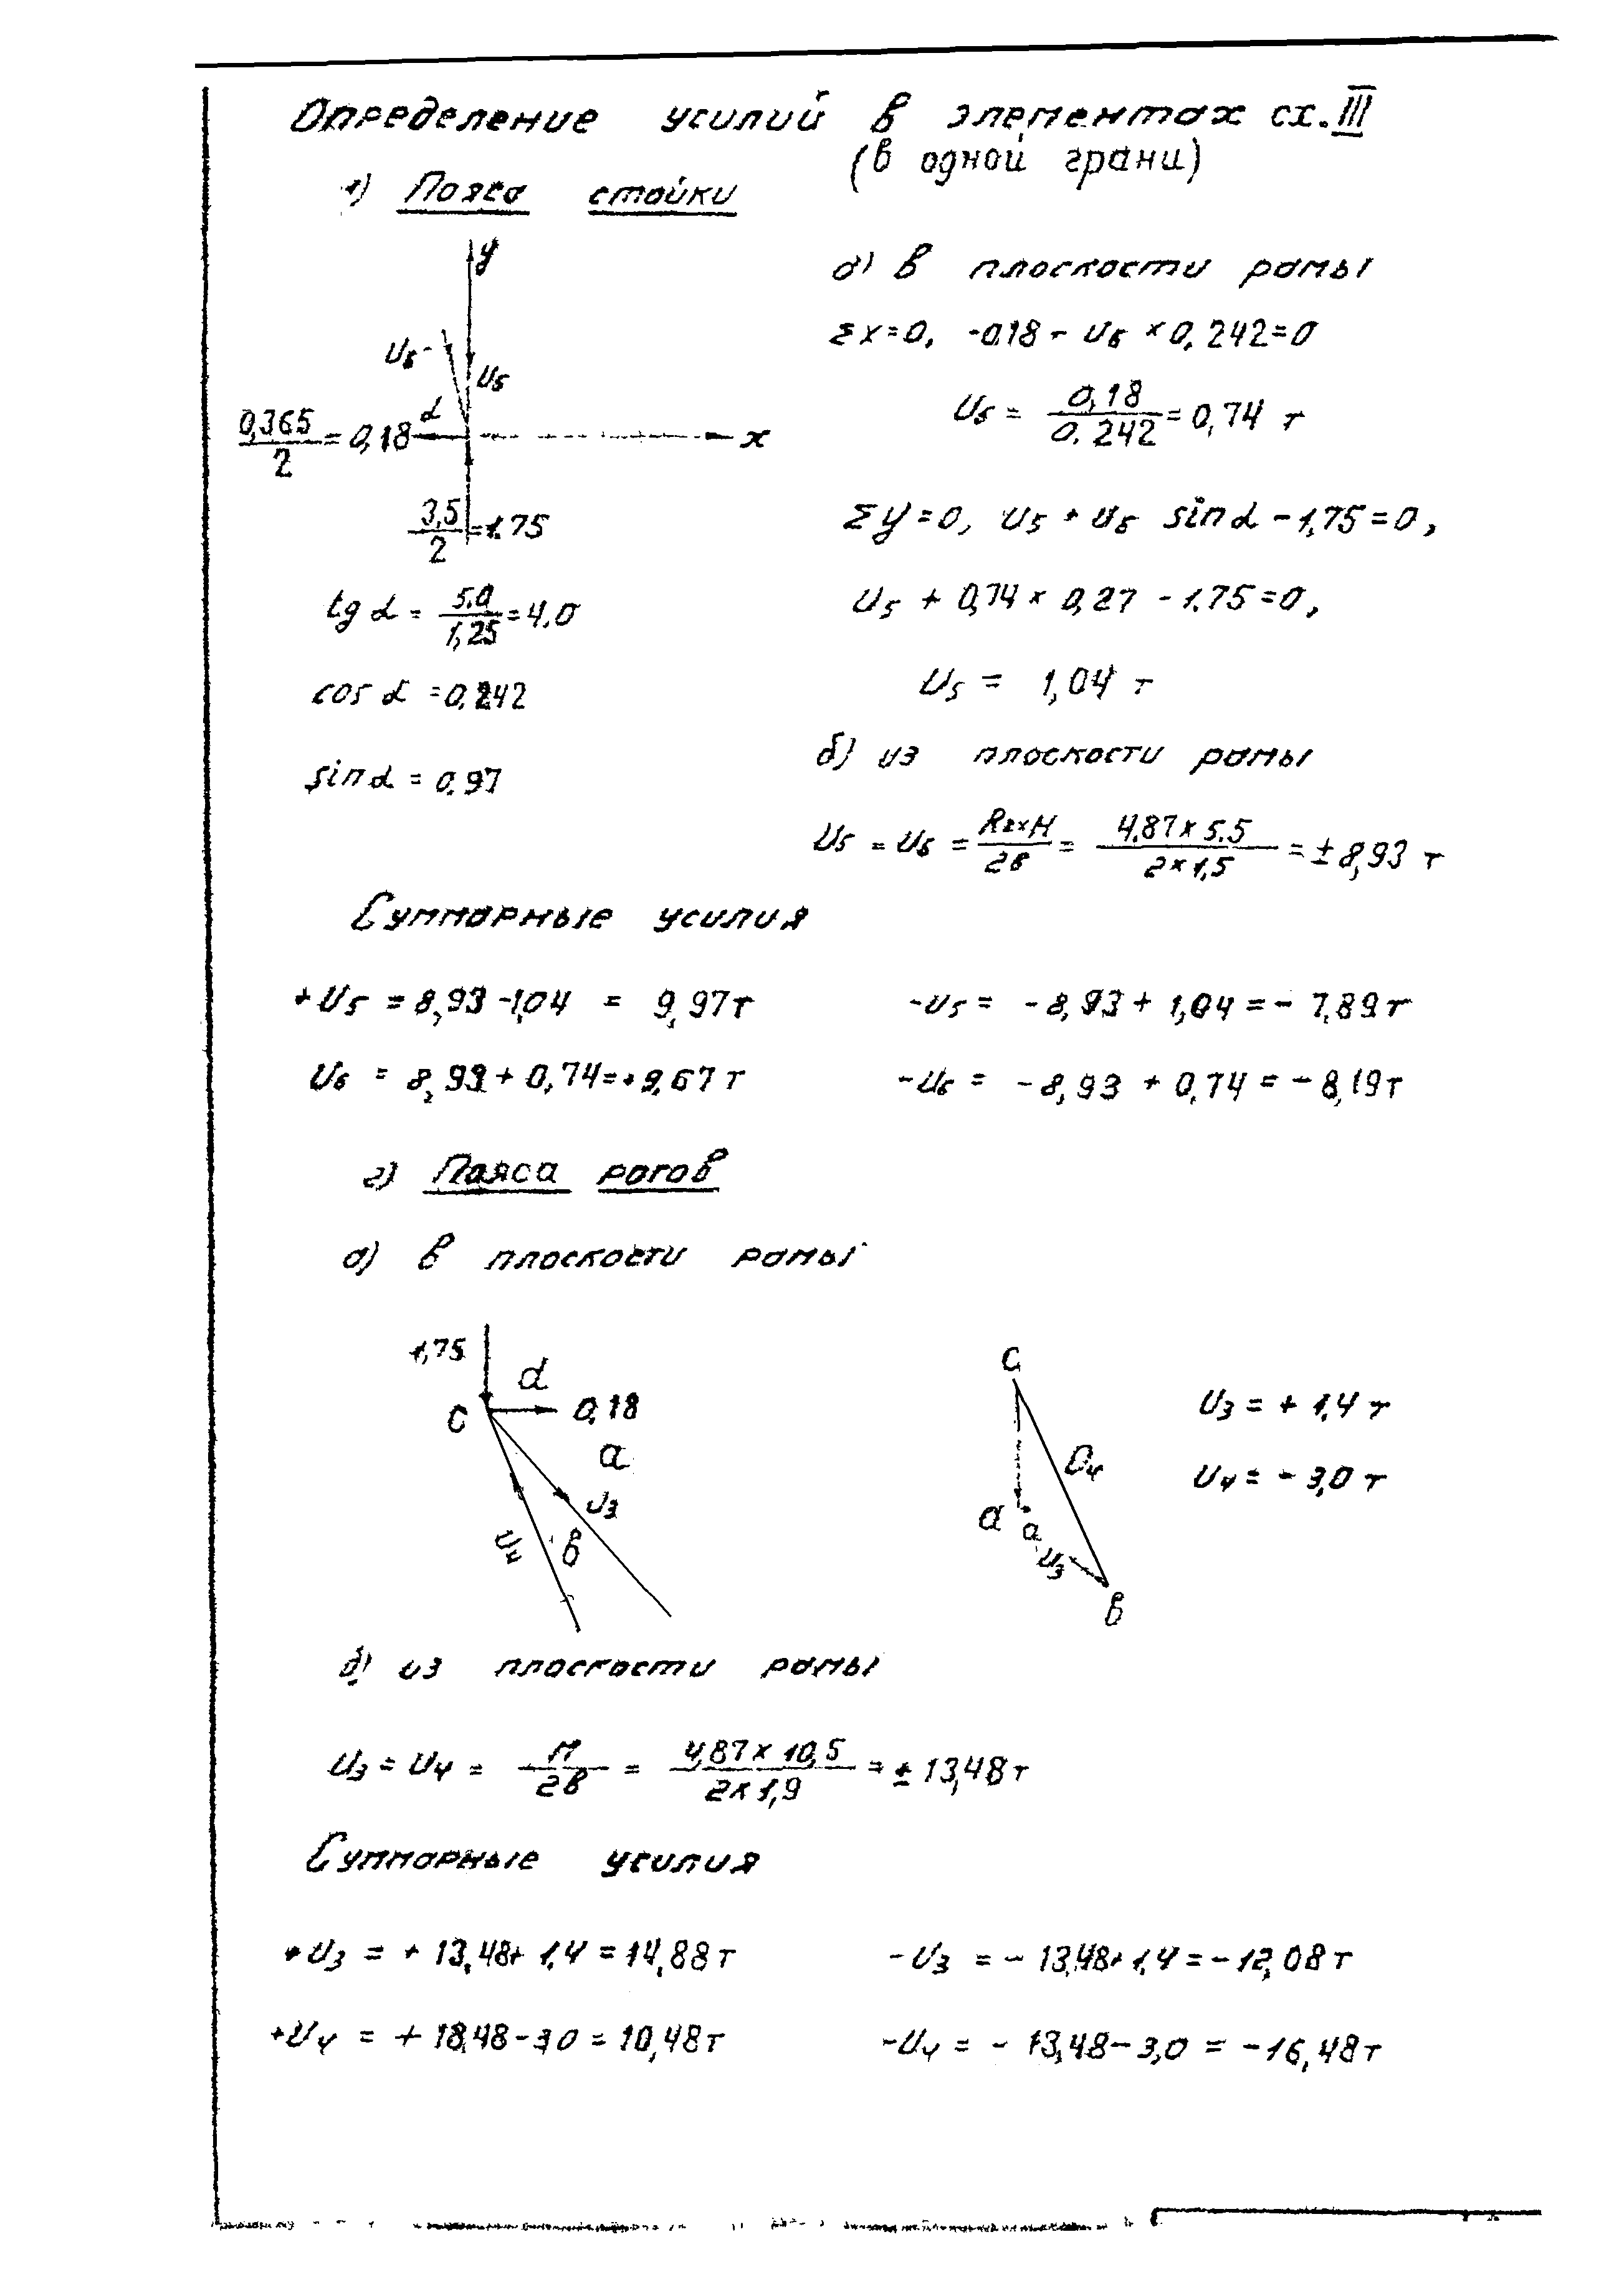 Определение усилий в элементах сх. III
(в одной грани)
1) Пояса стойки
y
U₆
U₅
α
0,365/2 = 0,18
x
3,5/2 = 1.75
tg α = 5.0/1,25 = 4.0
cos α = 0,242
sin α = 0.97
а) в плоскости рамы
Σx=0, -0.18 - U₆ × 0,242=0
U₆ = 0,18/0.242 = 0,74 т
Σy=0, U₅ + U₆ sin α - 1,75=0,
U₅ + 0,74 × 0,27 - 1.75=0,
U₅ = 1,04 т
б) из плоскости рамы
U₅ = U₆ = R₂×H/2в = 4.87×5.5/2×1,5 = ±8,93 т
Суммарные усилия
+U₅ = 8,93 -1,04 = 9,97т
-U₅ = -8,93 + 1,04 = - 7,89т
U₆ = 8,93 + 0,74=+9,67 т
-U₆ = -8,93 + 0,74 = - 8,19т
2) Пояса рогов
а) в плоскости рамы
1,75
d
c
0,18
a
U₃
U₄
в
c
O₄
a
a
U₃
в
U₃ = + 1,4 т
U₄ = - 3,0 т
б) из плоскости рамы
U₃ = U₄ = M/2в = 4,87×10,5/2×1,9 = ± 13,48т
Суммарные усилия
+U₃ = + 13,48+ 1,4 = 14,88т
-U₃ = - 13,48+1,4 = -12,08т
+U₄ = + 18,48-3,0 = 10,48т
-U₄ = - 13,48-3,0 = -16,48т